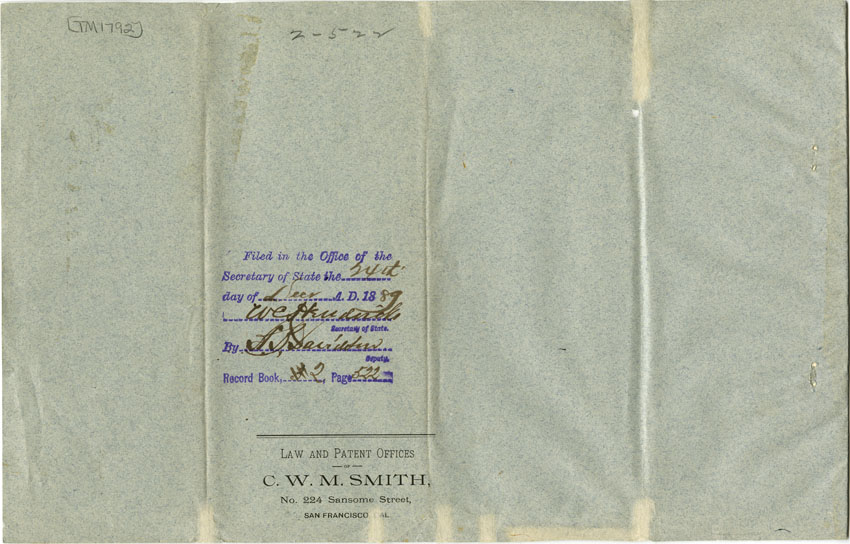 [TM1792]
2-522
Filed in the Office of the
Secretary of State the 24th
day of Dec A. D. 1889
W C Hendricks
Secretary of State.
By Davidson
Deputy.
Record Book, #2, Page 522
LAW AND PATENT OFFICES
OF
C. W. M. SMITH,
No. 224 Sansome Street,
SAN FRANCISCO, CAL.